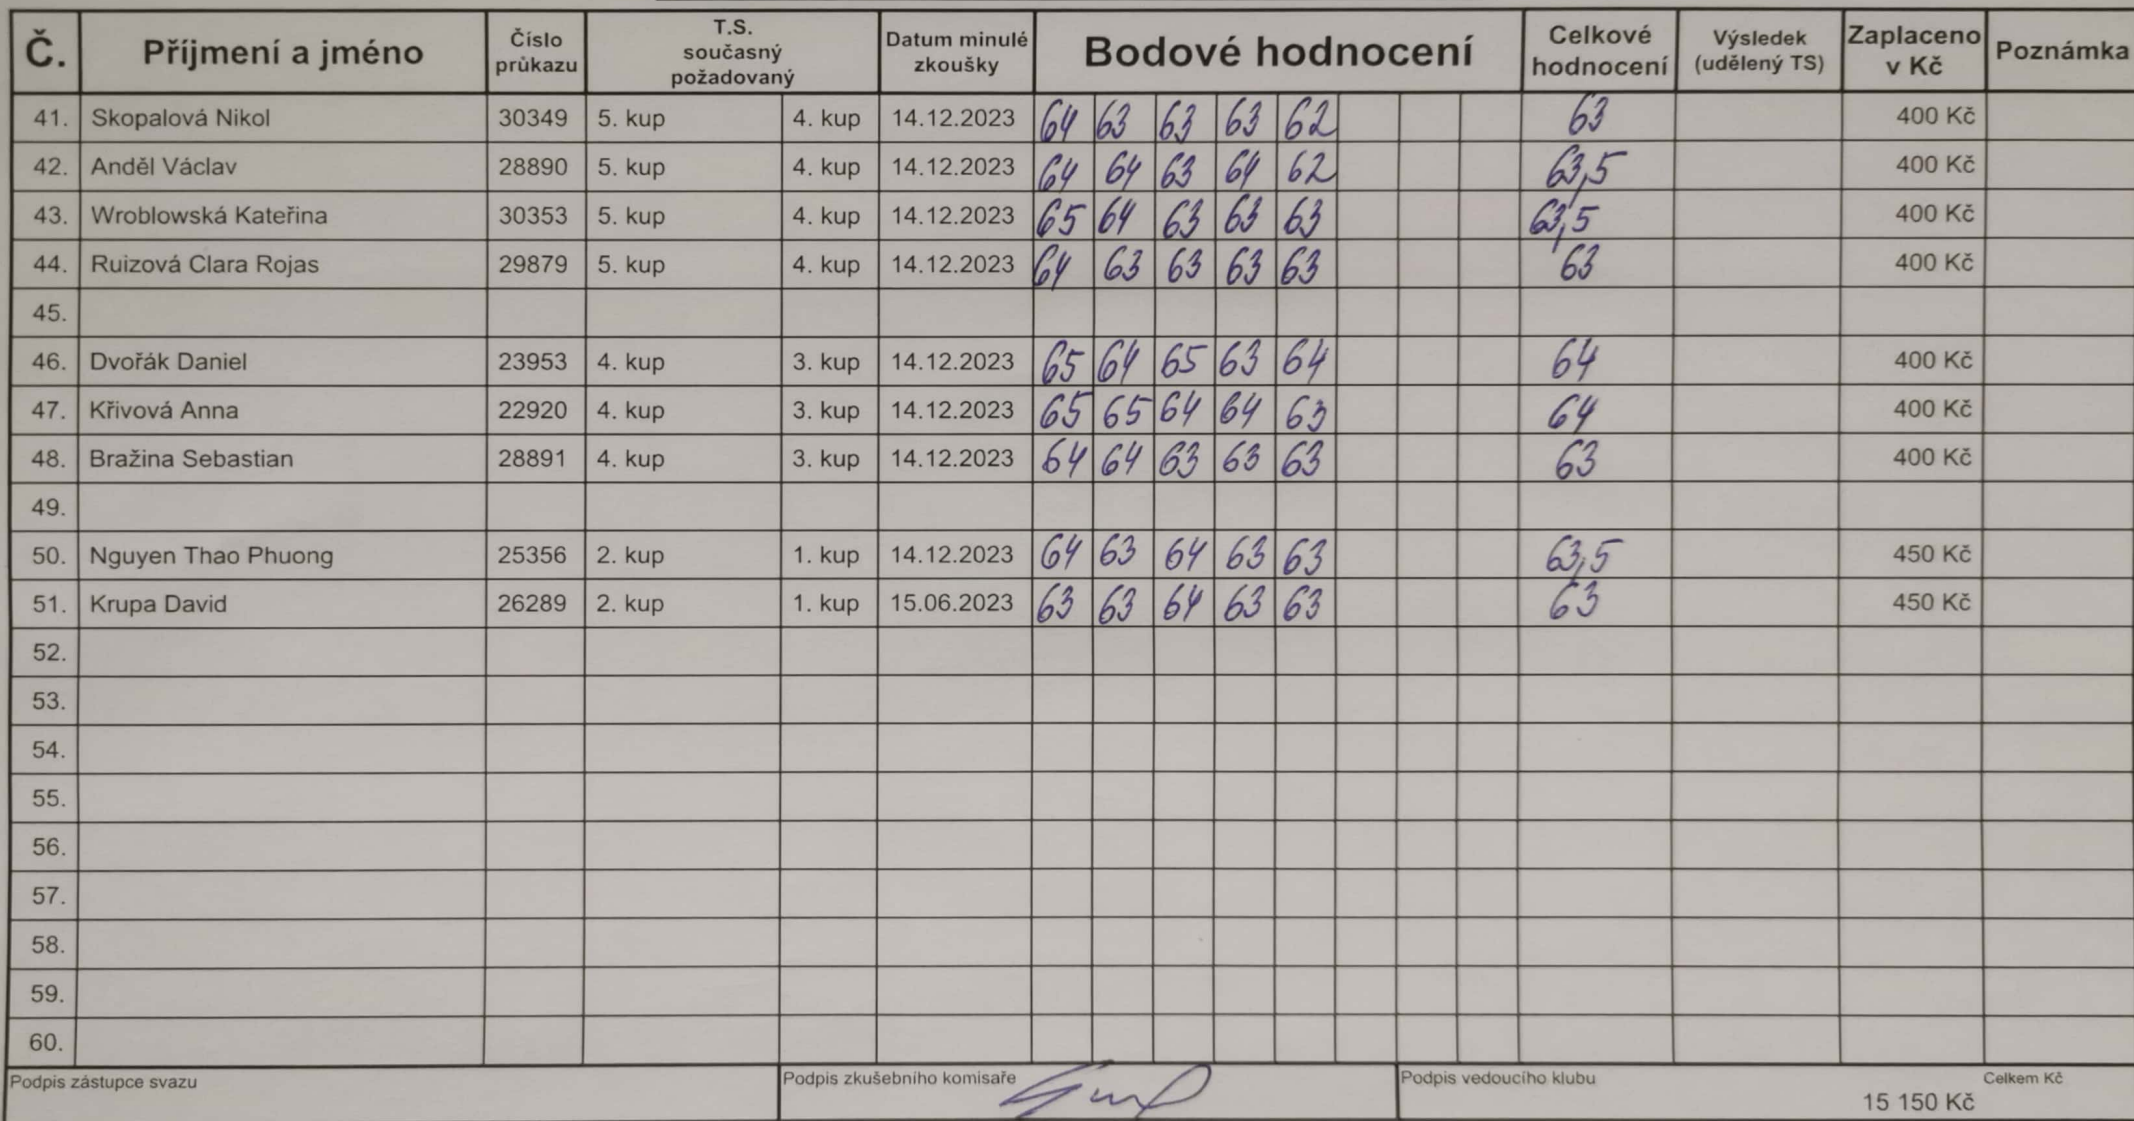 Č. Příjmení a jméno Číslo průkazu T.S. současný požadovaný Datum minulé zkoušky Bodové hodnocení Celkové hodnocení Výsledek (udělený TS) Zaplaceno v Kč Poznámka
41. Skopalová Nikol 30349 5. kup 4. kup 14.12.2023 64 63 63 63 62 63 400 Kč
42. Anděl Václav 28890 5. kup 4. kup 14.12.2023 64 64 63 64 62 63,5 400 Kč
43. Wroblowská Kateřina 30353 5. kup 4. kup 14.12.2023 65 64 63 63 63 63,5 400 Kč
44. Ruizová Clara Rojas 29879 5. kup 4. kup 14.12.2023 64 63 63 63 63 63 400 Kč
45.
46. Dvořák Daniel 23953 4. kup 3. kup 14.12.2023 65 64 65 63 64 64 400 Kč
47. Křivová Anna 22920 4. kup 3. kup 14.12.2023 65 65 64 64 63 64 400 Kč
48. Bražina Sebastian 28891 4. kup 3. kup 14.12.2023 64 64 63 63 63 63 400 Kč
49.
50. Nguyen Thao Phuong 25356 2. kup 1. kup 14.12.2023 64 63 64 63 63 63,5 450 Kč
51. Krupa David 26289 2. kup 1. kup 15.06.2023 63 63 64 63 63 63 450 Kč
52.
53.
54.
55.
56.
57.
58.
59.
60.
Podpis zástupce svazu Podpis zkušebního komisaře Podpis vedoucího klubu Celkem Kč
15 150 Kč